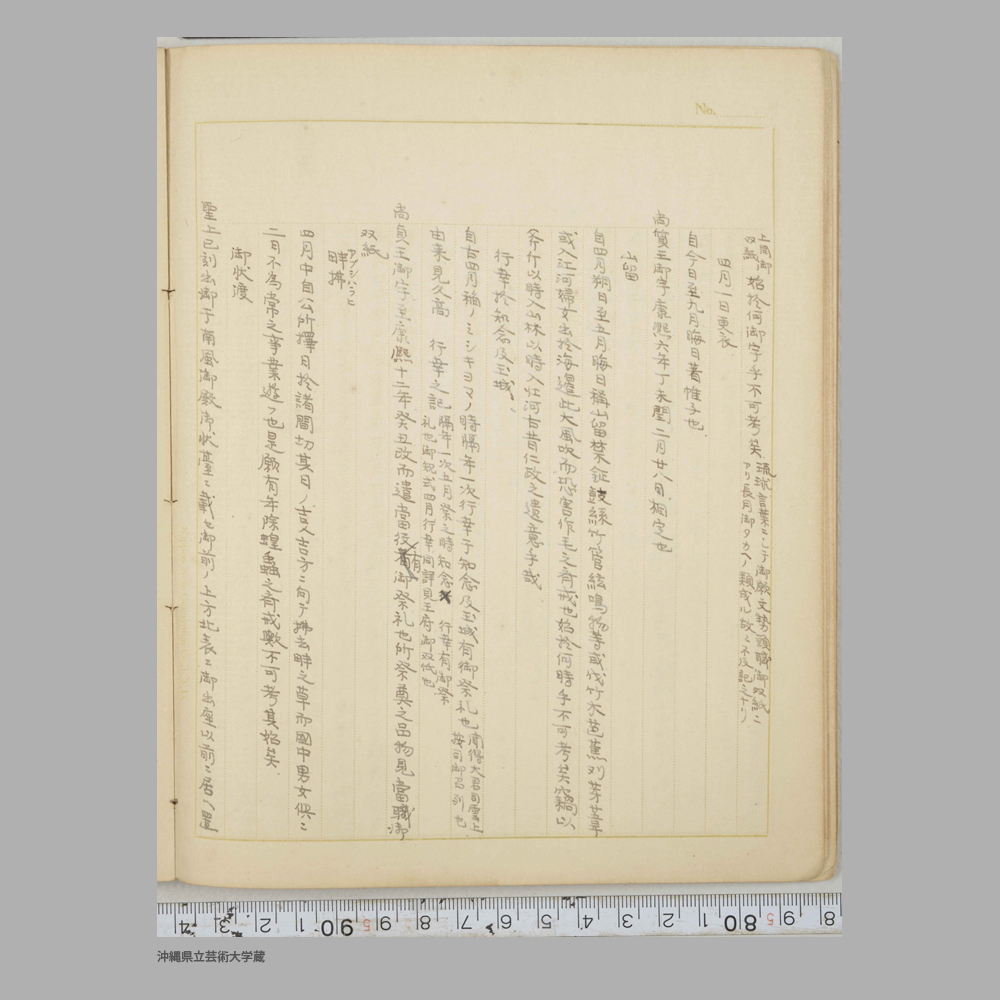 No.
上間御双紙 始於何御字乎不可考矣 琉球言葉ニシテ御願文勢頭職御双紙ニアリ長月御タカヘノ類或ハ故ニ不及記之ナリ
四月一日更衣
自今日至九月晦日著帷子也
尚質王御字康熈六年丁未閏二月廿八日ニ相定也
山留
自四月朔日至五月晦日稱山留禁鉦鼓絲竹管絃鳴物等或伐竹木芭蕉刈茅葦
或入江河婦女出於海邊此大風吹而恐害作毛之斎戒也始於何時乎不可考矣窃稱以
斧斤以時入山林以時入江河古昔仁政之遺意乎哉
行幸於知念及玉城
自古四月稲ノミシキヨマノ時隔年一次行幸于知念及玉城有御祭礼也 聞得大君司雲上按司御召列也
由来見久高 行幸之記 隔年一次五月祭之時知念 行幸有御祭礼也御規式四月行幸同詳見王府御双紙也
尚貞王御字至康熈十二年癸丑改而遣當役有御祭礼也所祭奠之品物見當職御
双紙
畔拂 アブシハラヒ
四月中自公所擇日於諸間切其日ノ吉人吉方ニ向テ拂去畔之草而國中男女供ニ
二日不為常之事業遊フ也是願有年除蝗蟲之斎戒歟不可考其始矣
御状渡
聖上巳刻出御于南風御殿御状臺ニ載セ御前ノ上方北表ニ御出座以前ニ居ヘ置
4 3 2 1 90 5 9 8 7 6 5 4 3 2 1 80 5 9 8
沖縄県立芸術大学蔵